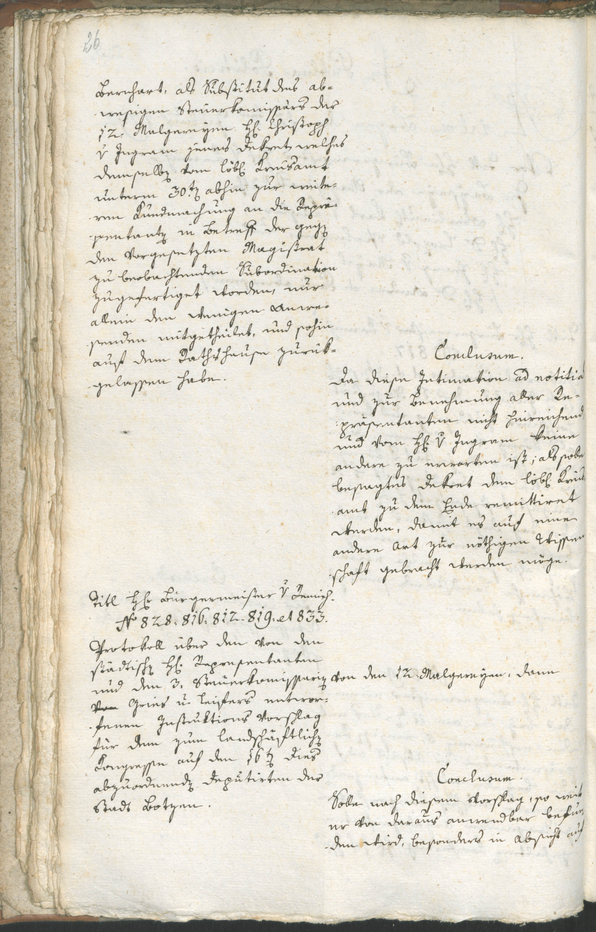 26
Bernhart, als Substitut des ab-
wesigen Steuerkomissärs der
12 Malgereyen H: Christoph
v Ingram jenes Dekret welches
demselb vom löbl Kreisamt
unterm 30t abhin zur weite-
ren Kundmachung an die Reprä-
sentant in Betreff der geg
den vorgesetzten Magistrat
zu beobachtenden Subordination
zugefertiget worden, nur
allein den wenigen Anwe-
senden mitgetheilet, und sohin
auf dem Rathshause zurük-
gelassen habe.
Conclusum.
Da diese Intimation ad notitia
und zur Benehmung aller Re-
präsentanten nicht hinreichend
und vom H: v Ingram keine
andere zu erwarten ist; als solle
besagtes Dekret dem löbl Kreis
amt zu dem Ende remittiret
werden, damit es auf eine
andere Art zur nöthigen Wissen-
schaft gebracht werden möge.
Titl H: Bürgermeister v
No 828. 816. 812. 819. et 833.
Protokoll über den von den
städtisch H: Representanten
und den 3. Steuerkomissarien von den 12 Malgereyen, dann
von Gries u: Leifers entwor-
fenen Instruktions Vorschlag
für dem zum landschäftlich
Kongresse auf den 16t dies
abzuordnend Deputirten der
Stadt Botzen.
Conclusum.
Solle nach diesem Vorschlag, so weit
er von daraus anwendbar befun-
den wird, besonders in Absicht auf